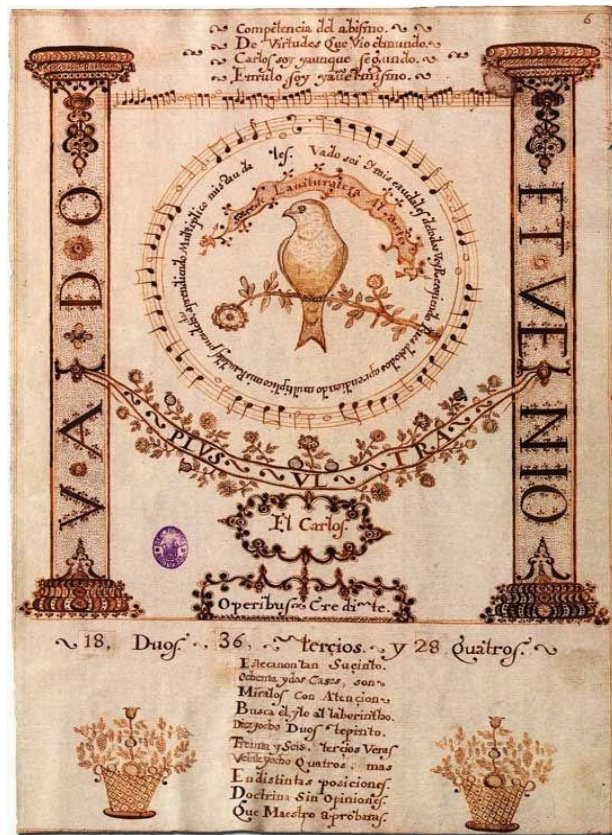 6
Competencia del abismo.
De Virtudes Que Vio el mundo.
Carlos soy yaunque segundo.
Enrulo soy
VADO
ETVENIO
Vado soi y mis caudales de todos Voy Recogiendo Pues de todos aprendiendo multiplico mis Raudales
aprendiendo Multiplico mis Raudales.
Al
PLVS VLTRA
El Carlos.
Operibus Credite.
18, Duos. 36, tercios. y 28 quatros.
Este canon tan Sucinto.
Ochenta y dos Casos, son
Miralos Con Atencion
Busca el ylo al laberintho.
Diez yocho Duos te pinto.
Treinta y Seis, tercios Veras
Veinte yocho Quatros, mas
En distintas posiciones.
Doctrina Sin Opiniones.
Que Maestro aprobaras.